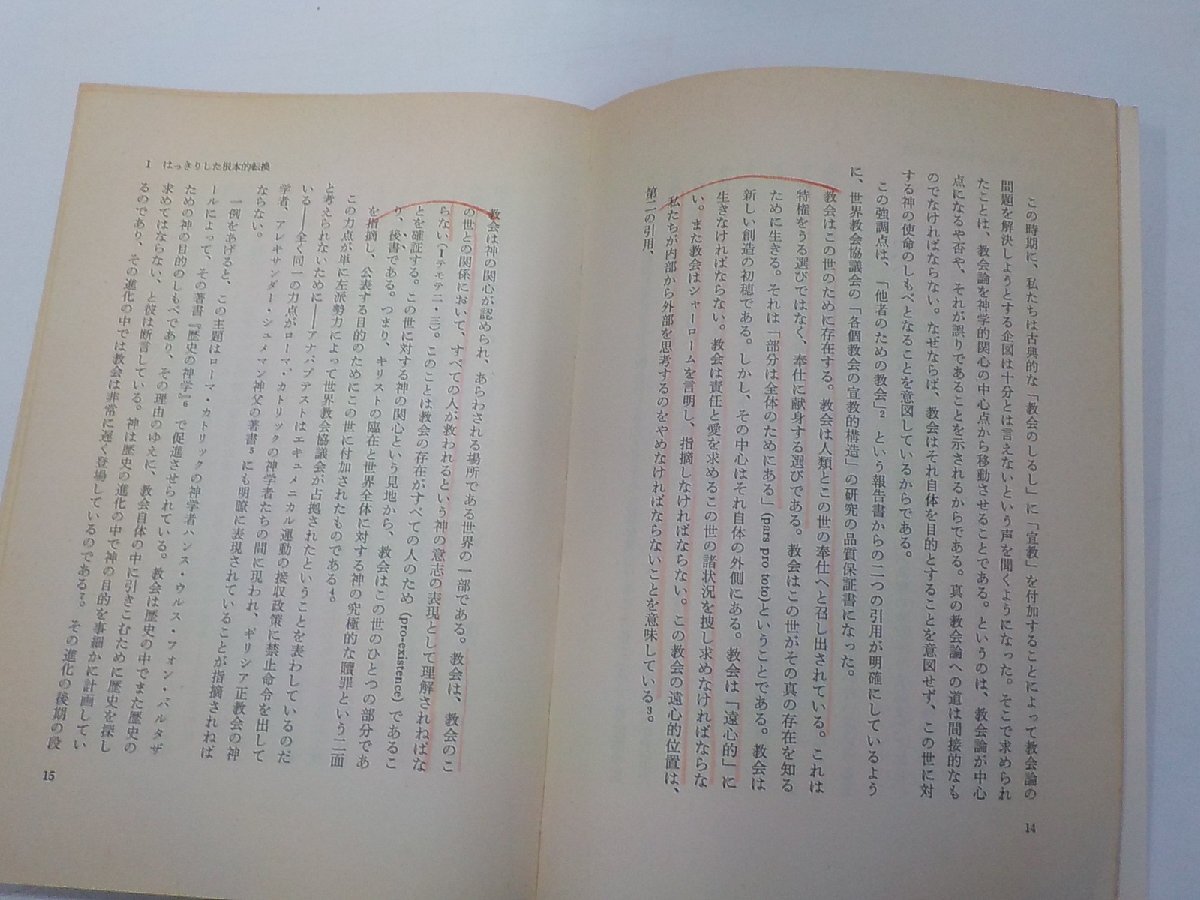 この時期に、私たちは古典的な「教会のしるし」に「宣教」を付加することによって教会論の
問題を解決しようとする企図は十分とは言えないという声を聞くようになった。そこで求められ
たことは、教会論を神学的関心の中心点から移動させることである。というのは、教会論が中心
点になるや否や、それが誤りであることを示されるからである。真の教会論への道は間接的なも
のでなければならない。なぜならば、教会はそれ自体を目的とすることを意図せず、この世に対
する神の使命のしもべとなることを意図しているからである。
この強調点は、「他者のための教会」2 という報告書からの二つの引用が明確にしているよう
に、世界教会協議会の「各個教会の宣教的構造」の研究の品質保証書になった。
教会はこの世のために存在する。教会は人類とこの世の奉仕へと召し出されている。これは
特権をうる選びではなく、奉仕に献身する選びである。教会はこの世がその真の存在を知る
ために生きる。それは「部分は全体のためにある」(pars pro toto)ということである。教会は
新しい創造の初穂である。しかし、その中心はそれ自体の外側にある。教会は「遠心的」に
生きなければならない。教会は責任と愛を求めるこの世の諸状況を捜し求めなければならな
い。また教会はシャーロームを言明し、指摘しなければならない。この教会の遠心的位置は、
私たちが内部から外部を思考するのをやめなければならないことを意味している3。
第二の引用、
14
1 はっきりした根本的転換
教会は神の関心が認められ、あらわされる場所である世界の一部である。教会は、教会のこ
の世との関係において、すべての人が救われるという神の意志の表現として理解されねばな
らない(Iテモテ二・三)。このことは教会の存在がすべての人のため (pro-existence) であるこ
とを確証する。この世に対する神の関心という見地から、教会はこの世のひとつの部分であ
り、後書である。つまり、キリストの臨在と世界全体に対する神の究極的な贖罪という二面
を指摘し、公表する目的のためにこの世に付加されたものである4。
この力点が単に左派勢力によって世界教会協議会が占拠されたということを表わしているのだ
と考えられないために――アナバプテストはエキュメニカル運動の接収政策に禁止命令を出して
いる――全く同一の力点がローマ・カトリックの神学者たちの間に現われ、ギリシア正教会の神
学者、アレキサンダー・シュメマン神父の著書5 にも明瞭に表現されていることが指摘されねば
ならない。
一例をあげると、この主題はローマ・カトリックの神学者ハンス・ウルス・フォン・バルタザ
ールによって、その著書『歴史の神学』6 で促進させられている。教会は歴史の中でまた歴史の
ための神の目的のしもべであり、その理由のゆえに、教会自体の中に引きこむために歴史を探し
求めてはならない、と彼は断言している。神は歴史の進化の中で神の目的を事細かに計画してい
るのであり、その進化の中では教会は非常に遅く登場しているのである7。その進化の後期の段
15